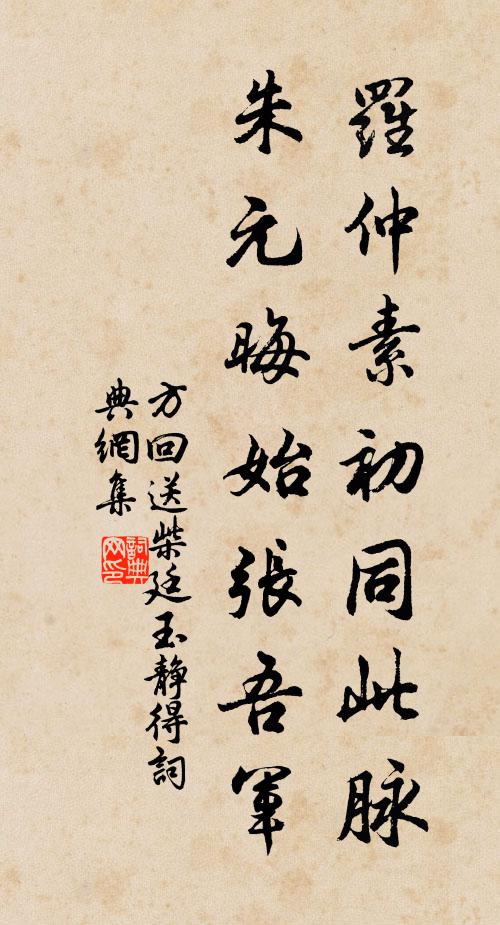 羅仲素初同此脉
朱元晦始張吾軍
方回送柴廷玉靜得詞
典網集
詞典
网印